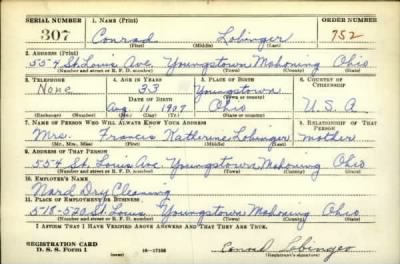 SERIAL NUMBER 1. NAME (Print) ORDER NUMBER
307 Conrad Lobinger 752
(First) (Middle) (Last)
2. ADDRESS (Print)
554 St. Louis Ave Youngstown Mahoning Ohio
(Number and street or R. F. D. number) (Town) (County) (State)
3. TELEPHONE 4. AGE IN YEARS 5. PLACE OF BIRTH 6. COUNTRY OF CITIZENSHIP
None 33 Youngstown
(Town or county)
DATE OF BIRTH
Aug 11 1907 Ohio U. S. A
(Mo.) (Day) (Yr.) (State or country)
7. NAME OF PERSON WHO WILL ALWAYS KNOW YOUR ADDRESS 8. RELATIONSHIP OF THAT PERSON
Mrs. Francis Katherine Lobinger mother
(Mr., Mrs., Miss) (First) (Middle) (Last)
9. ADDRESS OF THAT PERSON
554 St. Louis Ave Youngstown Mahoning Ohio
(Number and street or R. F. D. number) (Town) (County) (State)
10. EMPLOYER'S NAME
Ward Dry Cleaning
11. PLACE OF EMPLOYMENT OR BUSINESS
518-520 St Louis Youngstown Mahoning Ohio
(Number and street or R. F. D. number) (Town) (County) (State)
I AFFIRM THAT I HAVE VERIFIED ABOVE ANSWERS AND THAT THEY ARE TRUE.
REGISTRATION CARD
D. S. S. Form 1 Conrad Lobinger
(over) (Registrant's signature)